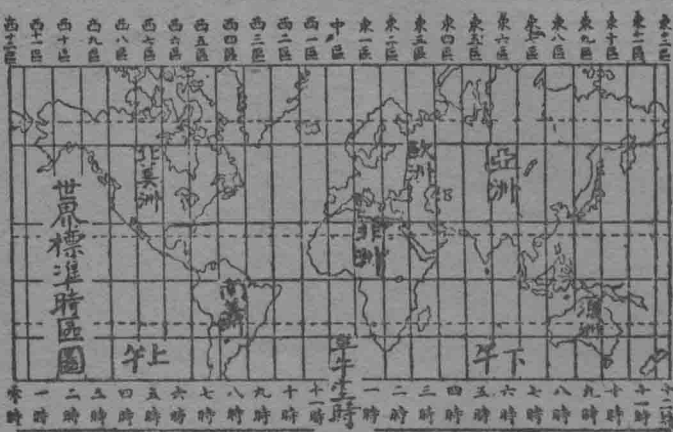 西十二區 西十一區 西十區 西九區 西八區 西七區 西六區 西五區 西四區 西三區 西二區 西一區 中區 東一區 東二區 東三區 東四區 東五區 東六區 東七區 東八區 東九區 東十區 東十一區 東十二區
北美洲
歐洲
亞洲
世界標準時區圖
非洲
南美洲
澳洲
上午
下午
零時 一時 二時 三時 四時 五時 六時 七時 八時 九時 十時 十一時 一時 二時 三時 四時 五時 六時 七時 八時 九時 十時 十一時 十二時